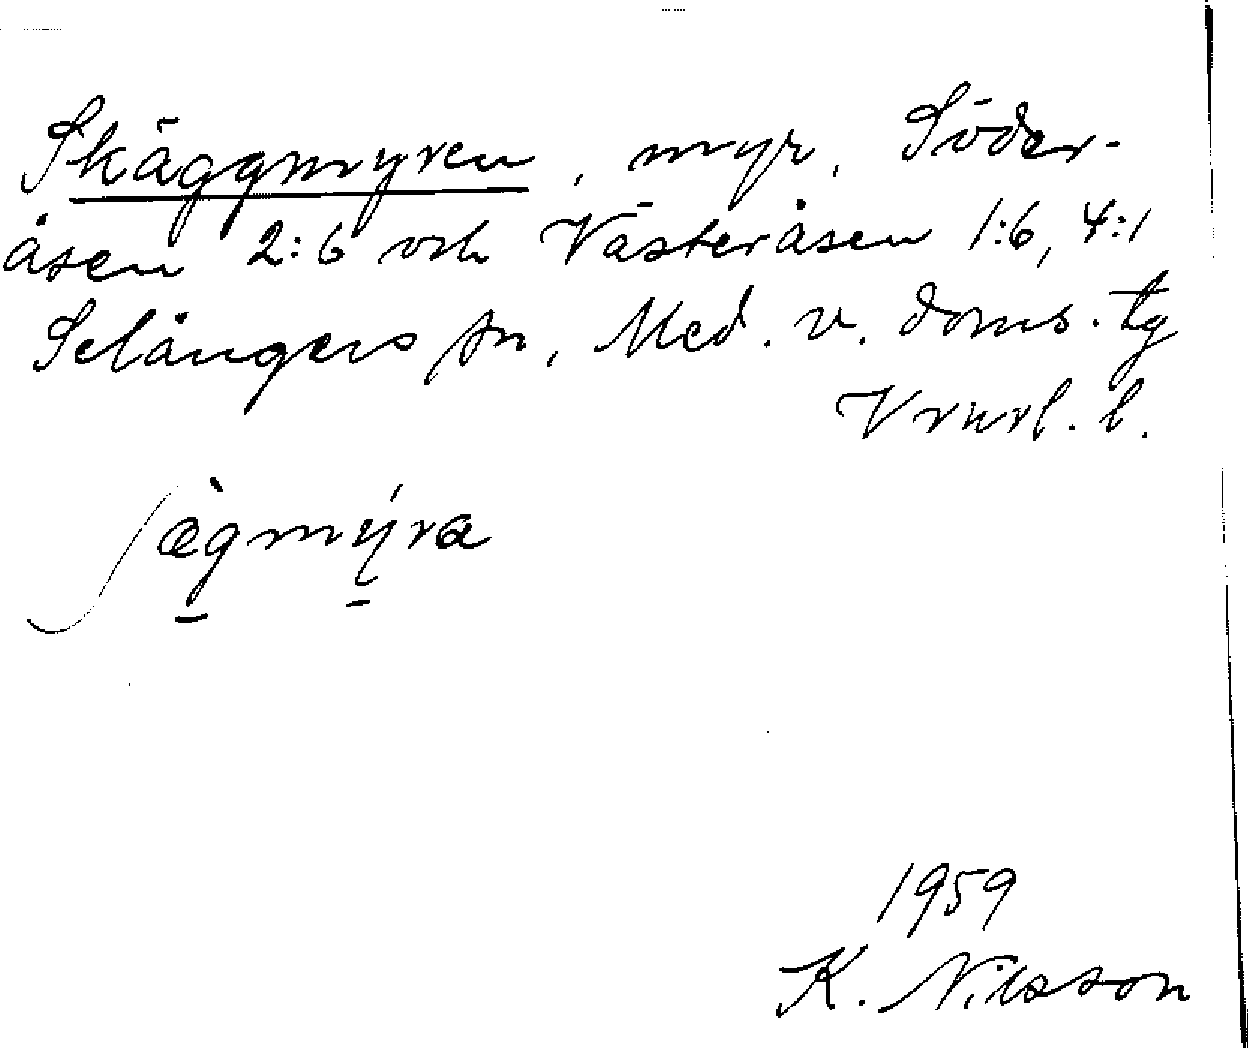 Skäggmyren, myr, Söder-
åsen 2:6 och Västeråsen 1:6, 4:1
Selångers sn, Med. v. doms. tg
Vrnrl. l.
ʃæ̀gmýra
1959
K. Nilsson